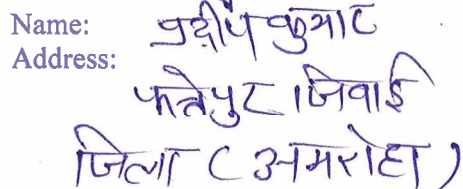 Name: प्रदीप कुमार
Address:
फत्तेपुर जिवाई
जिला (अमरोहा)